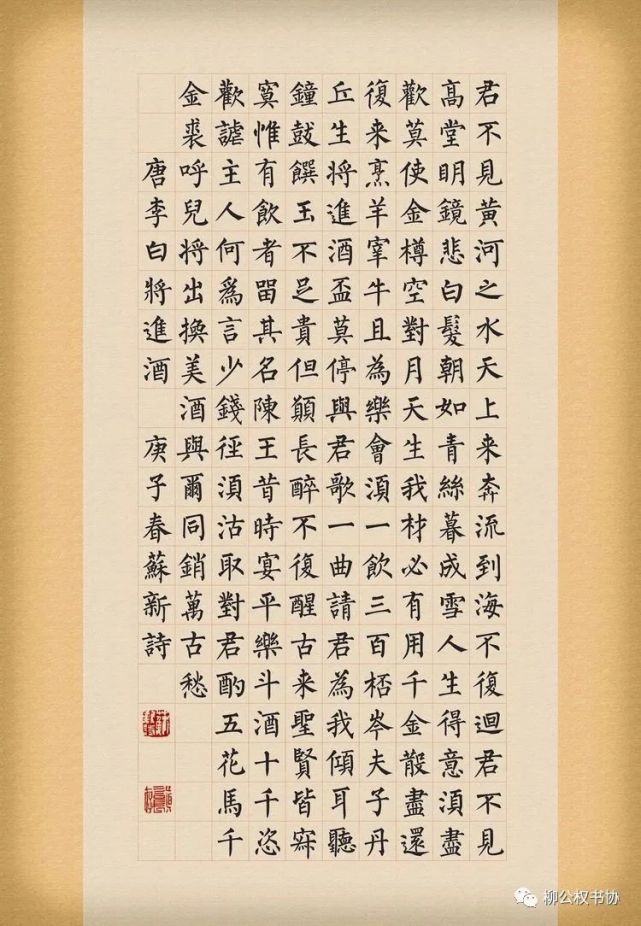 君不見黃河之水天上来奔流到海不復迴君不見
高堂明鏡悲白髮朝如青絲暮成雪人生得意須盡
歡莫使金樽空對月天生我材必有用千金散盡還
復来烹羊宰牛且為樂會須一飲三百桮岑夫子丹
丘生將進酒盃莫停與君歌一曲請君為我傾耳聽
鐘鼓饌玉不足貴但願長醉不復醒古来聖賢皆寂
寞惟有飲者留其名陳王昔時宴平樂斗酒十千恣
歡謔主人何爲言少錢徑須沽取對君酌五花馬千
金裘呼兒將出換美酒與爾同銷萬古愁
唐李白將進酒 庚子春蘇新詩
柳公权书协